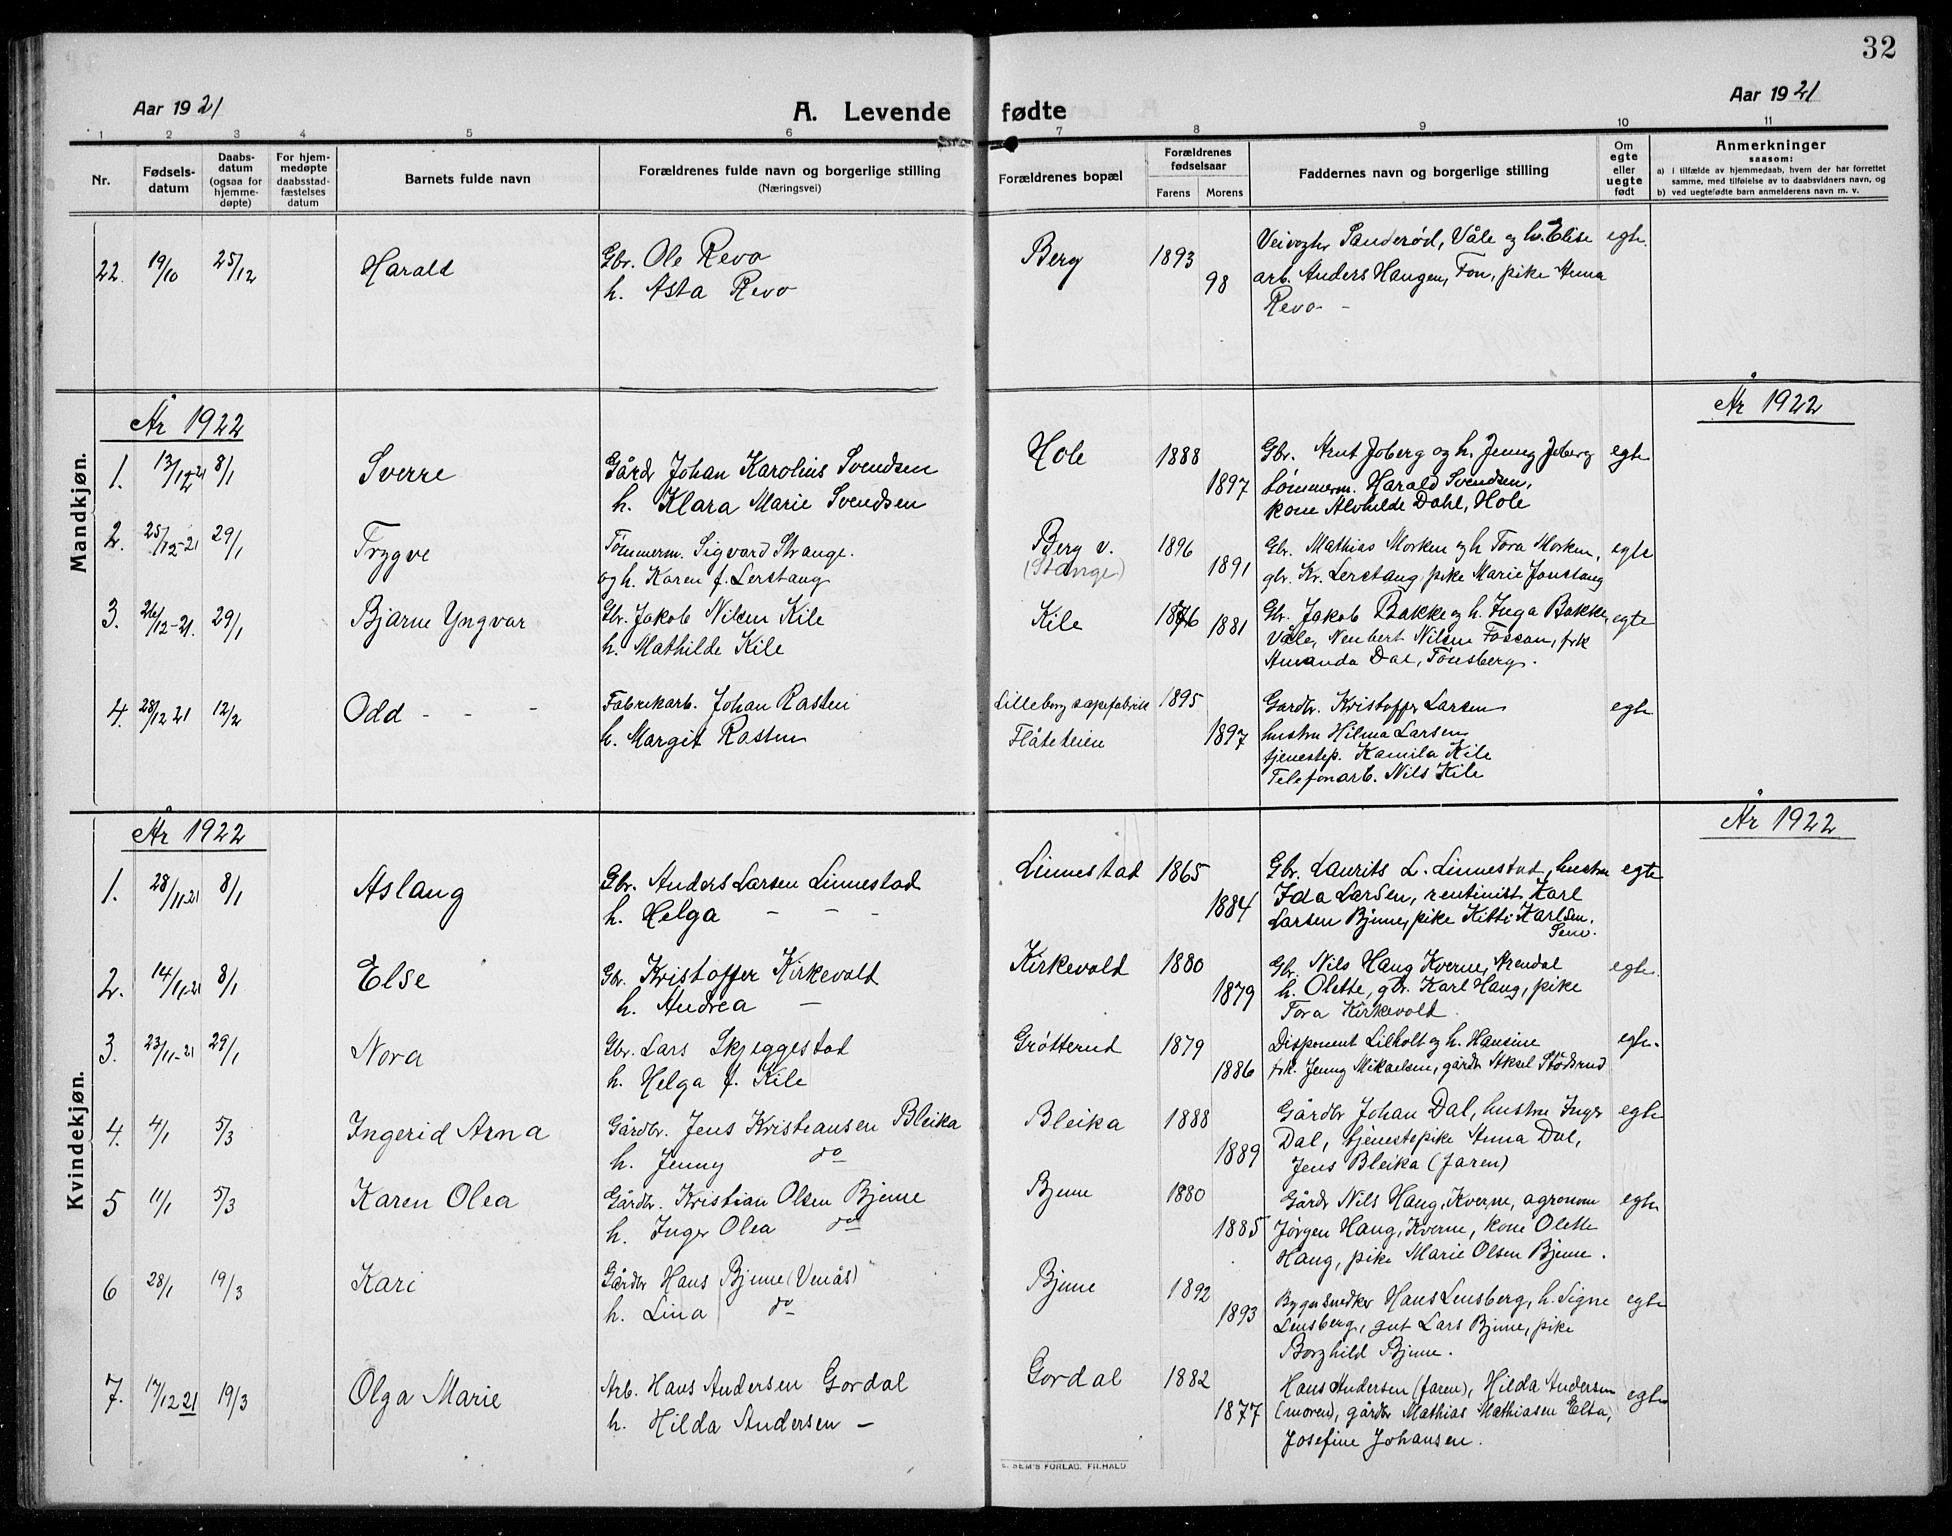 32
Aar 1921
A. Levende fødte
Aar 1921
1 2 3 4 5 6 7 8 9 10 11
Nr.
Fødsels-
datum
Daabs-
datum
(ogsaa for
hjemme-
døpte)
For hjem-
medøpte
daabsstad-
fæstelses
datum
Barnets fulde navn
Forældrenes fulde navn og borgerlige stilling
(Næringsvei)
Forældrenes bopæl
Forældrenes
fødselsaar
Farens Morens
Faddernes navn og borgerlige stilling
Om
egte
eller
uegte
født
Anmerkninger
saasom:
a) i tilfælde av hjemmedaab, hvem der har forrettet
samme, med tilføielse av to daabsvidners navn, og
b) ved uegtefødte barn anmelderens navn m. v.
Mandkjøn.
22. 19/10 25/12 Harald
Gbr. Ole Revo
h. Asta Revo
Berg 1893 98
Veivogter Sanderød, Våle og h. Elise
arb. Anders Haugen, Fon, pike Anna
Revo -
egte
År 1922
År 1922
1. 13/12-21 8/1 Sverre
Gårdr Johan Karolius Svendsen
h. Klara Marie Svendsen
Hole 1888 1897
Gbr. Arnt Joberg og h. Jenny Joberg
tømmerm. Harald Svendsen,
kone Alvhilde Dahl, Hole
egte
2. 25/12-21 29/1 Trygve
Tømmerm. Sigvard Strange.
og h. Karen f. Lerstang
Berg v.
(Stange)
1896 1891
Gbr. Mathias Morken og h Tora Morken,
gbr. Kr. Lerstang, pike Marie Jonstang
egte
3. 26/12-21. 29/1 Bjarne Yngvar
Gbr. Jakob Nilsen Kile
h. Mathilde Kile
Kile 1876 1881
Gbr. Jakob Bakke og h. Inga Bakke,
Våle, Neubert Nilsen Foscon, frk
Amanda Dal, Tønsberg.
egte
4. 28/12 21 12/2 Odd - - -
Fabrikarb. Johan Rasten
h. Margit Rasten
Lilleborg sæpefabrik
Flåteteien
1895 1897
Gardbr. Kristoffer Larsen
hustru Hilma Larsen
tjenestep. Kamila Kile
Telefonarb. Nils Kile
egte
Kvindekjøn.
År 1922
År 1922
1. 28/11-21 8/1 Aslaug
Gbr. Anders Larsen Linnestad
h. Helga - - -
Linnestad 1865 1884
Gbr. Laurits L. Linnestad, hustru
Ida Larsen, rentinist Karl
Larsen Bjune, pike Kitti Karlsen.
Sem.
egte
2. 14/11-21 8/1 Else
Gbr. Kristoffer Kirkevold
h. Andrea -
Kirkevold 1880 1879
Gbr. Nils Haug Kverne, Arendal
h. Olette, gbr. Karl Haug, pike
Tora Kirkevold.
egte.
3. 23/11-21 29/1 Nora
Gbr. Lars Skjeggestad
h. Helga f. Kile
Grøtterud 1879 1886
Disponent Lilholt og h. Hansine
frk. Jenny Mikaelsen, gårdr Aksel Stødsrud
egte.
4. 4/1 5/3 Ingerid Arna
Gårdbr. Jens Kristiansen Bleika
h. Jenny do
Bleika 1888 1889
Gårdbr Johan Dal, hustru Inger
Dal, tjenestepike Anna Dal,
Jens Bleika (faren)
egte
5 11/1 5/3 Karen Olea
Gårdbr. Kristian Olsen Bjune
h. Inger Olea do
Bjune 1880 1885
Gårdr Nils Haug, Kverne, agronom
Jørgen Haug, Kverne, kone Olette
Haug, pike Marie Olsen Bjune.
egte
6 28/1 19/3 Kari
Gårdbr Hans Bjune (Vmås)
h. Lina do
Bjune 1892 1893
Bygn.snedker Hans Lensberg, h. Signe
Lensberg, gut Lars Bjune, pike
Borghild Bjune.
egte
7. 17/12 21 19/3 Olga Marie
Arb. Hans Andersen Gordal
h. Hilda Andersen -
Gordal 1882 1877
Hans Andersen (faren), Hilda Andersen
(moren), gårdbr Mathias Mathiasen Elta,
Josefine Johansen.
egte
SEM'S FORLAG, FR.HALD